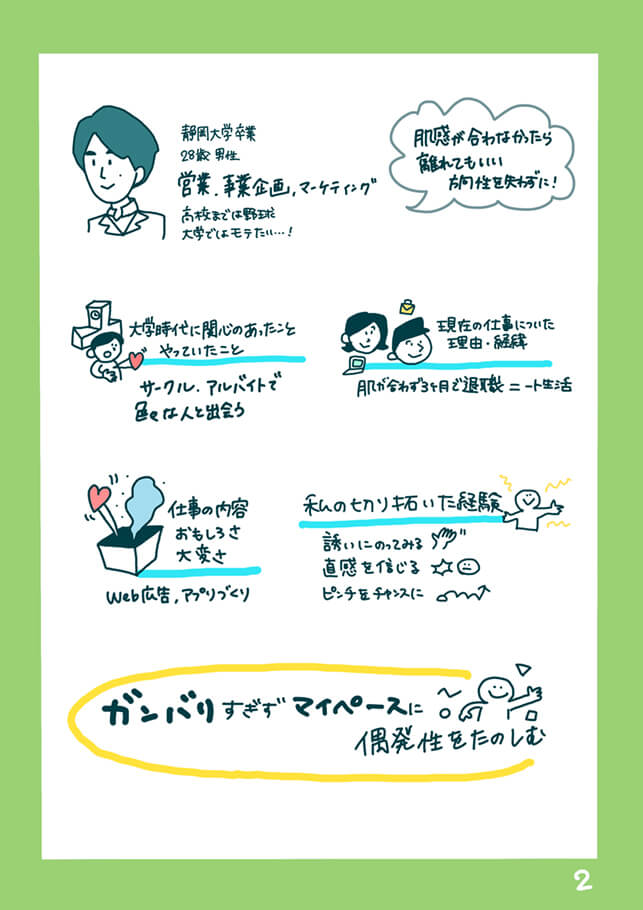 静岡大学卒業
28歳 男性
営業、事業企画、マーケティング
高校までは野球
大学ではモテたい…！
肌感が合わなかったら
離れてもいい
方向性を失わずに！
大学時代に関心のあったこと
やっていたこと
サークル、アルバイトで
色々な人と出会う
現在の仕事についた
理由・経緯
肌が合わず3ヶ月で退職ニート生活
仕事の内容
おもしろさ
大変さ
Web広告、アプリづくり
私の切り拓いた経験
誘いにのってみる
直感を信じる
ピンチをチャンスに
ガンバりすぎずマイペースに
偶発性をたのしむ
2